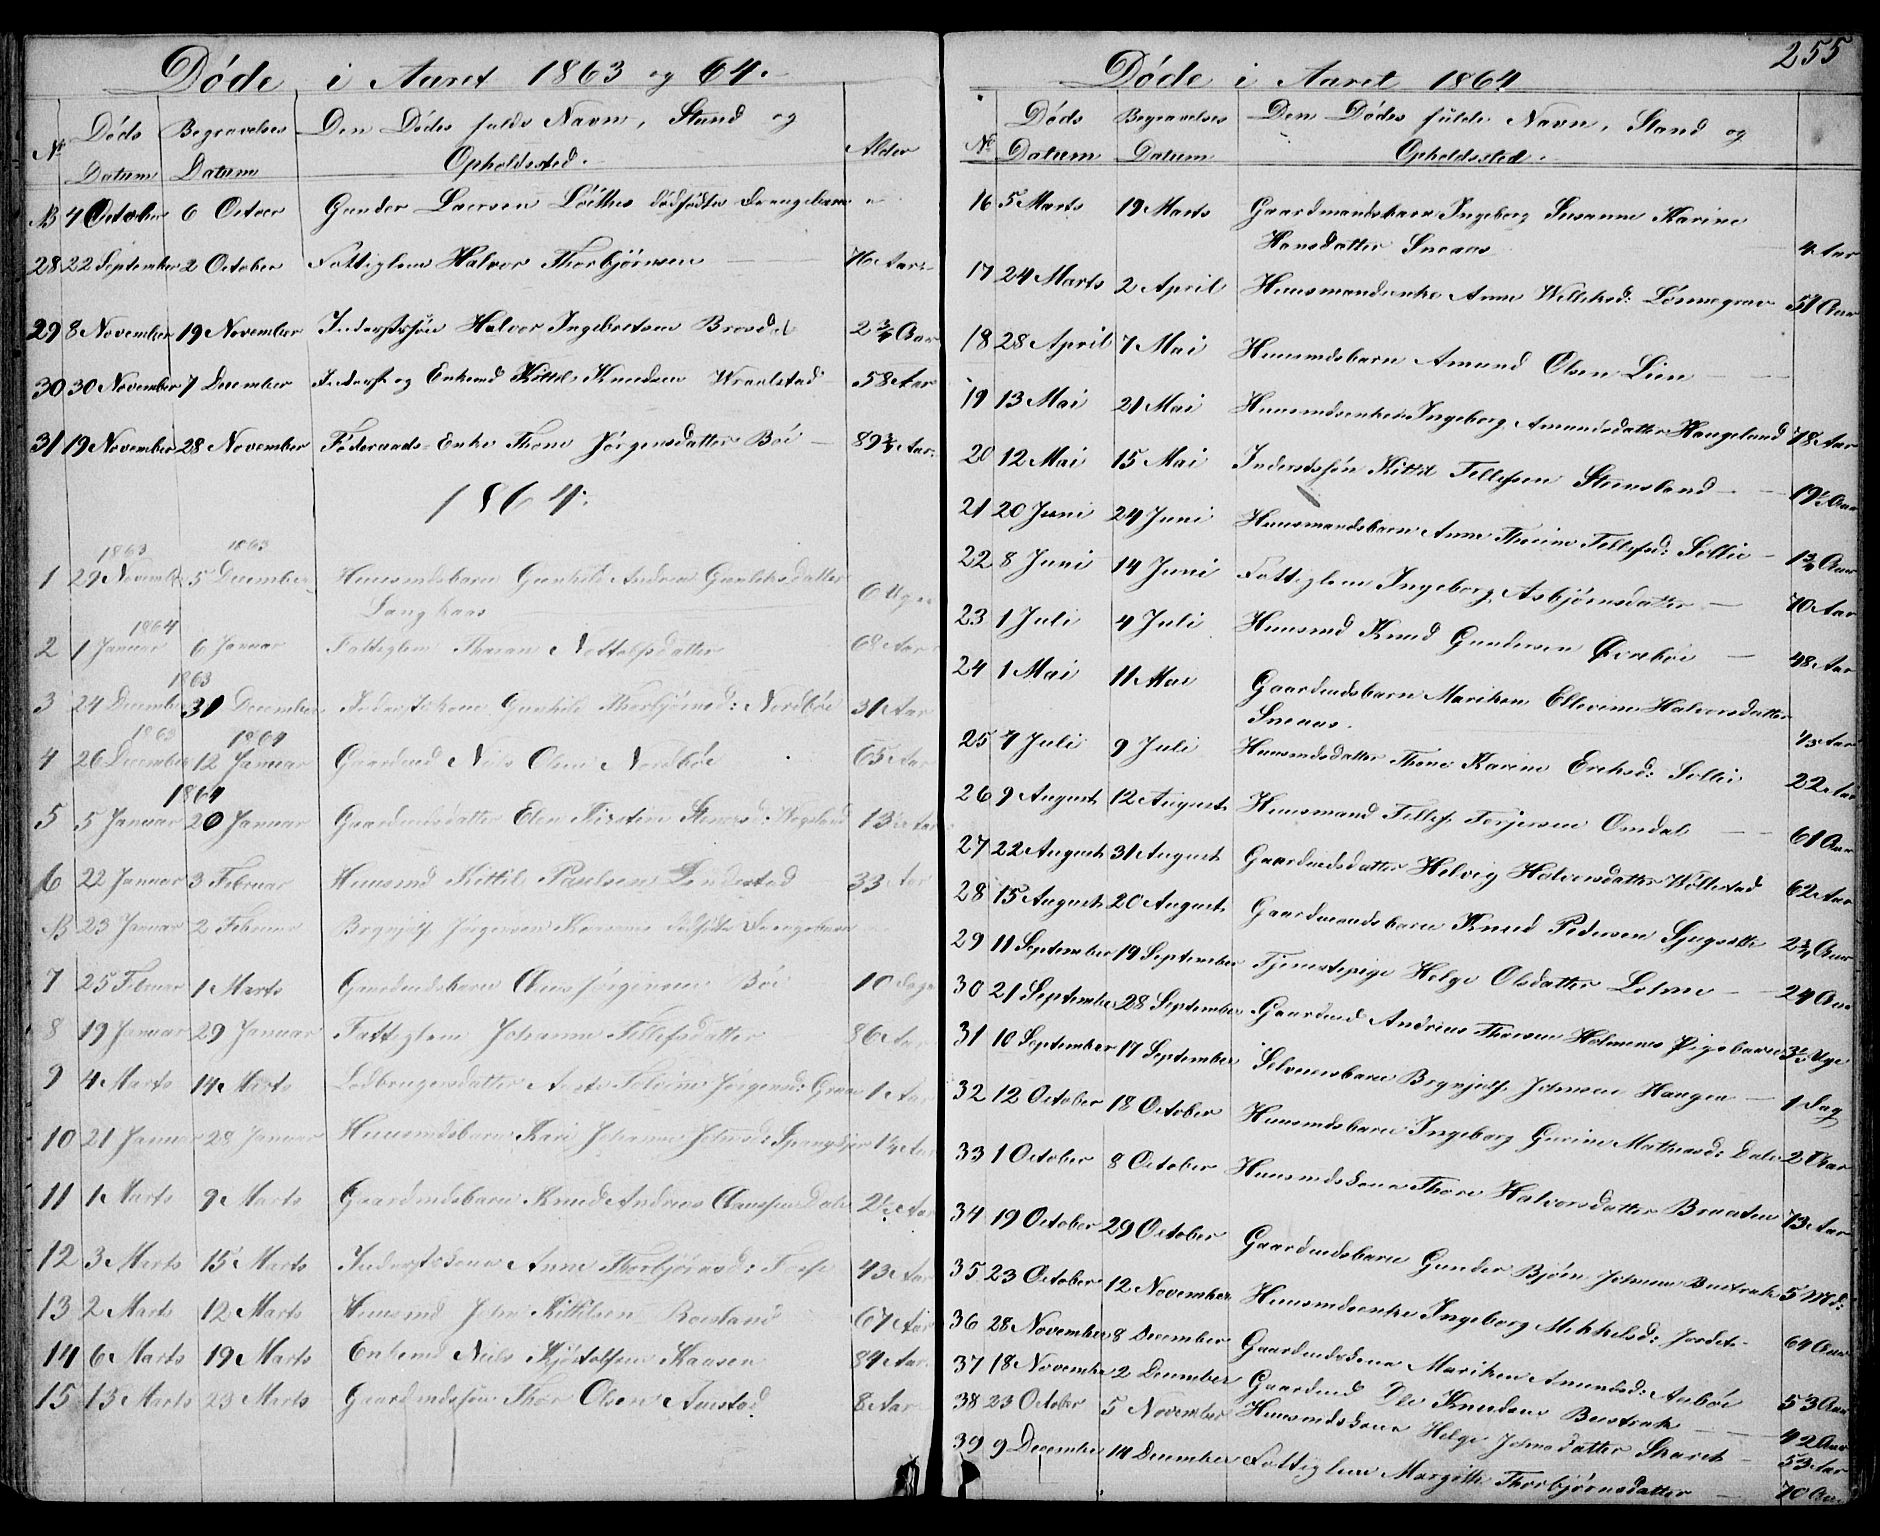 Døde i Aaret 1863 og 64.
Nr Døds Datum Begravelses Datum Den Dødes fulde Navn, Stand og Opholdssted. Alder
NB 4 October 6 October Gunder Larsen dødfødte Drengebarn "
28 22 September 2 October Fattiglem Halvor Thorbjørnsen 76 Aar
29 8 November 19 November Inderstsøn Halvor Ingebretsen 2 3/4 Aar
30 30 November 7 December Inderst og Enkemd Kittil Knudsen 58 Aar
31 19 November 28 November Føderaads-Enke Thone Jørgensdatter Bøe 89 3/4 Aar
1864.
1863 1863
1 29 November 5 December Huusmdsbarn Gunhild Andrea Gunleiksdatter
Langkaas 6 Uger
1864
2 1 Januar 6 Januar Fattiglem Tharan Nottolfsdatter 68 Aar
1863
3 24 December 31 December Inderstskone Gunhild Thorbjørnsd: Nordbøe 31 Aar
1863 1864
4 26 December 12 Januar Gaardmd Nils Olsen Nordbøe 65 Aar
1864
5 5 Januar 20 Januar Gaardmdsdatter Elen Kirstine 13 Aar
6 22 Januar 3 Februar Huusmd Kittil Paulsen 33 Aar
NB 23 Januar 2 Februar Brynjulf Jørgensen dødfødte Drengebarn
7 25 Februar 1 Marts Gaardmdsbarn Claus Jørgensen Bøe 10 Dage
8 19 Januar 29 Januar Fattiglem Johanne Tellefsdatter 86 Aar
9 4 Marts 14 Marts Lodbrugersdatter Jørgensd: 1 Aar
10 21 Januar 28 Januar Huusmdsbarn Kari Johanne Johnsd: 1 1/4 Aar
11 1 Marts 9 Marts Gaardmdsbarn Knud Andreas Claussen Dale 2 1/2 Aar
12 3 Marts 15 Marts Inderstskone Anne Thorbjørnsd: 43 Aar
13 2 Marts 12 Marts Huusmd John Kittilsen 67 Aar
14 6 Marts 19 Marts Enkemd Niels Kjøstolfsen Kaasen 84 Aar
15 13 Marts 23 Marts Gaardmdssøn Thor Olsen 8 Aar
255
Døde i Aaret 1864
Nr Døds Datum Begravelses Datum Den Dødes fulde Navn, Stand og Opholdssted.
16 5 Marts 19 Marts Gaardmandsbarn Ingeborg Susanne Karine
Hansdatter Snaas 4 Aar
17 24 Marts 2 April Huusmandsenke Anne 51 Aar
18 28 April 7 Mai Huusmdsbarn Amund Olsen Lien
19 13 Mai 21 Mai Huusmdsenke Ingeborg Amundsdatter Haugeland 78 Aar
20 12 Mai 15 Mai Inderstsøn Kittil Tellefsen Steensland 19 1/2 Aar
21 20 Juni 24 Juni Huusmandsbarn Anne Thorine Tellefsd: Sollie 1 3/4 Aar
22 8 Juni 14 Juni Fattiglem Ingeborg Asbjørnsdatter 70 Aar
23 1 Juli 4 Juli Huusmd Knud Gundersen Øvrebøe 48 Aar
24 1 Mai 11 Mai Gaardmdsbarn Mariken Ellevine Halvorsdatter
Snaas. Aar
25 7 Juli 9 Juli Huusmdsdatter Thone Karine Erichsd: Sollie 22 Aar
26 9 August 12 August Huusmand Tellef Terjersen Omdal 61 Aar
27 22 August 31 August Gaardmdsdatter Helvig Halvorsdatter Wollestad 62 Aar
28 15 August 20 August Gaardmandsbarn Knud Pedersen 2 3/4 Aar
29 11 September 19 September Tjenestepige Helge Olsdatter 24 Aar
30 21 September 28 September Gaardmd Andreas Thorsen Holmenes Pigebarn 3 1/2 Uge
31 10 September 17 September Selveiersbarn Brynjulf Johnsen Haugen 1 Dag
32 12 October 18 October Huusmdsbarn Ingeborg Gurine Mathiasd: Dale 2 Aar
33 1 October 8 October Huusmdskone Thone Halvorsdatter Braaten 73 Aar
34 19 October 29 October Gaardmdsbarn Gunder Bjørn Johnsen Bustrak 5 Md:
35 23 October 12 November Huusmdsenke Ingeborg Mikkelsd: Jordet 64 Aar
36 28 November 8 December Gaardmdskone Mariken Amundsd: Aabøe 53 Aar
37 18 November 2 December Gaardmd Ole Knudsen Bustrak 42 Aar
38 23 October 5 November Huusmdskone Helge Johnsdatter 53 Aar
39 9 December 14 December Fattiglem Margith Thorbjørnsdatter 70 Aar